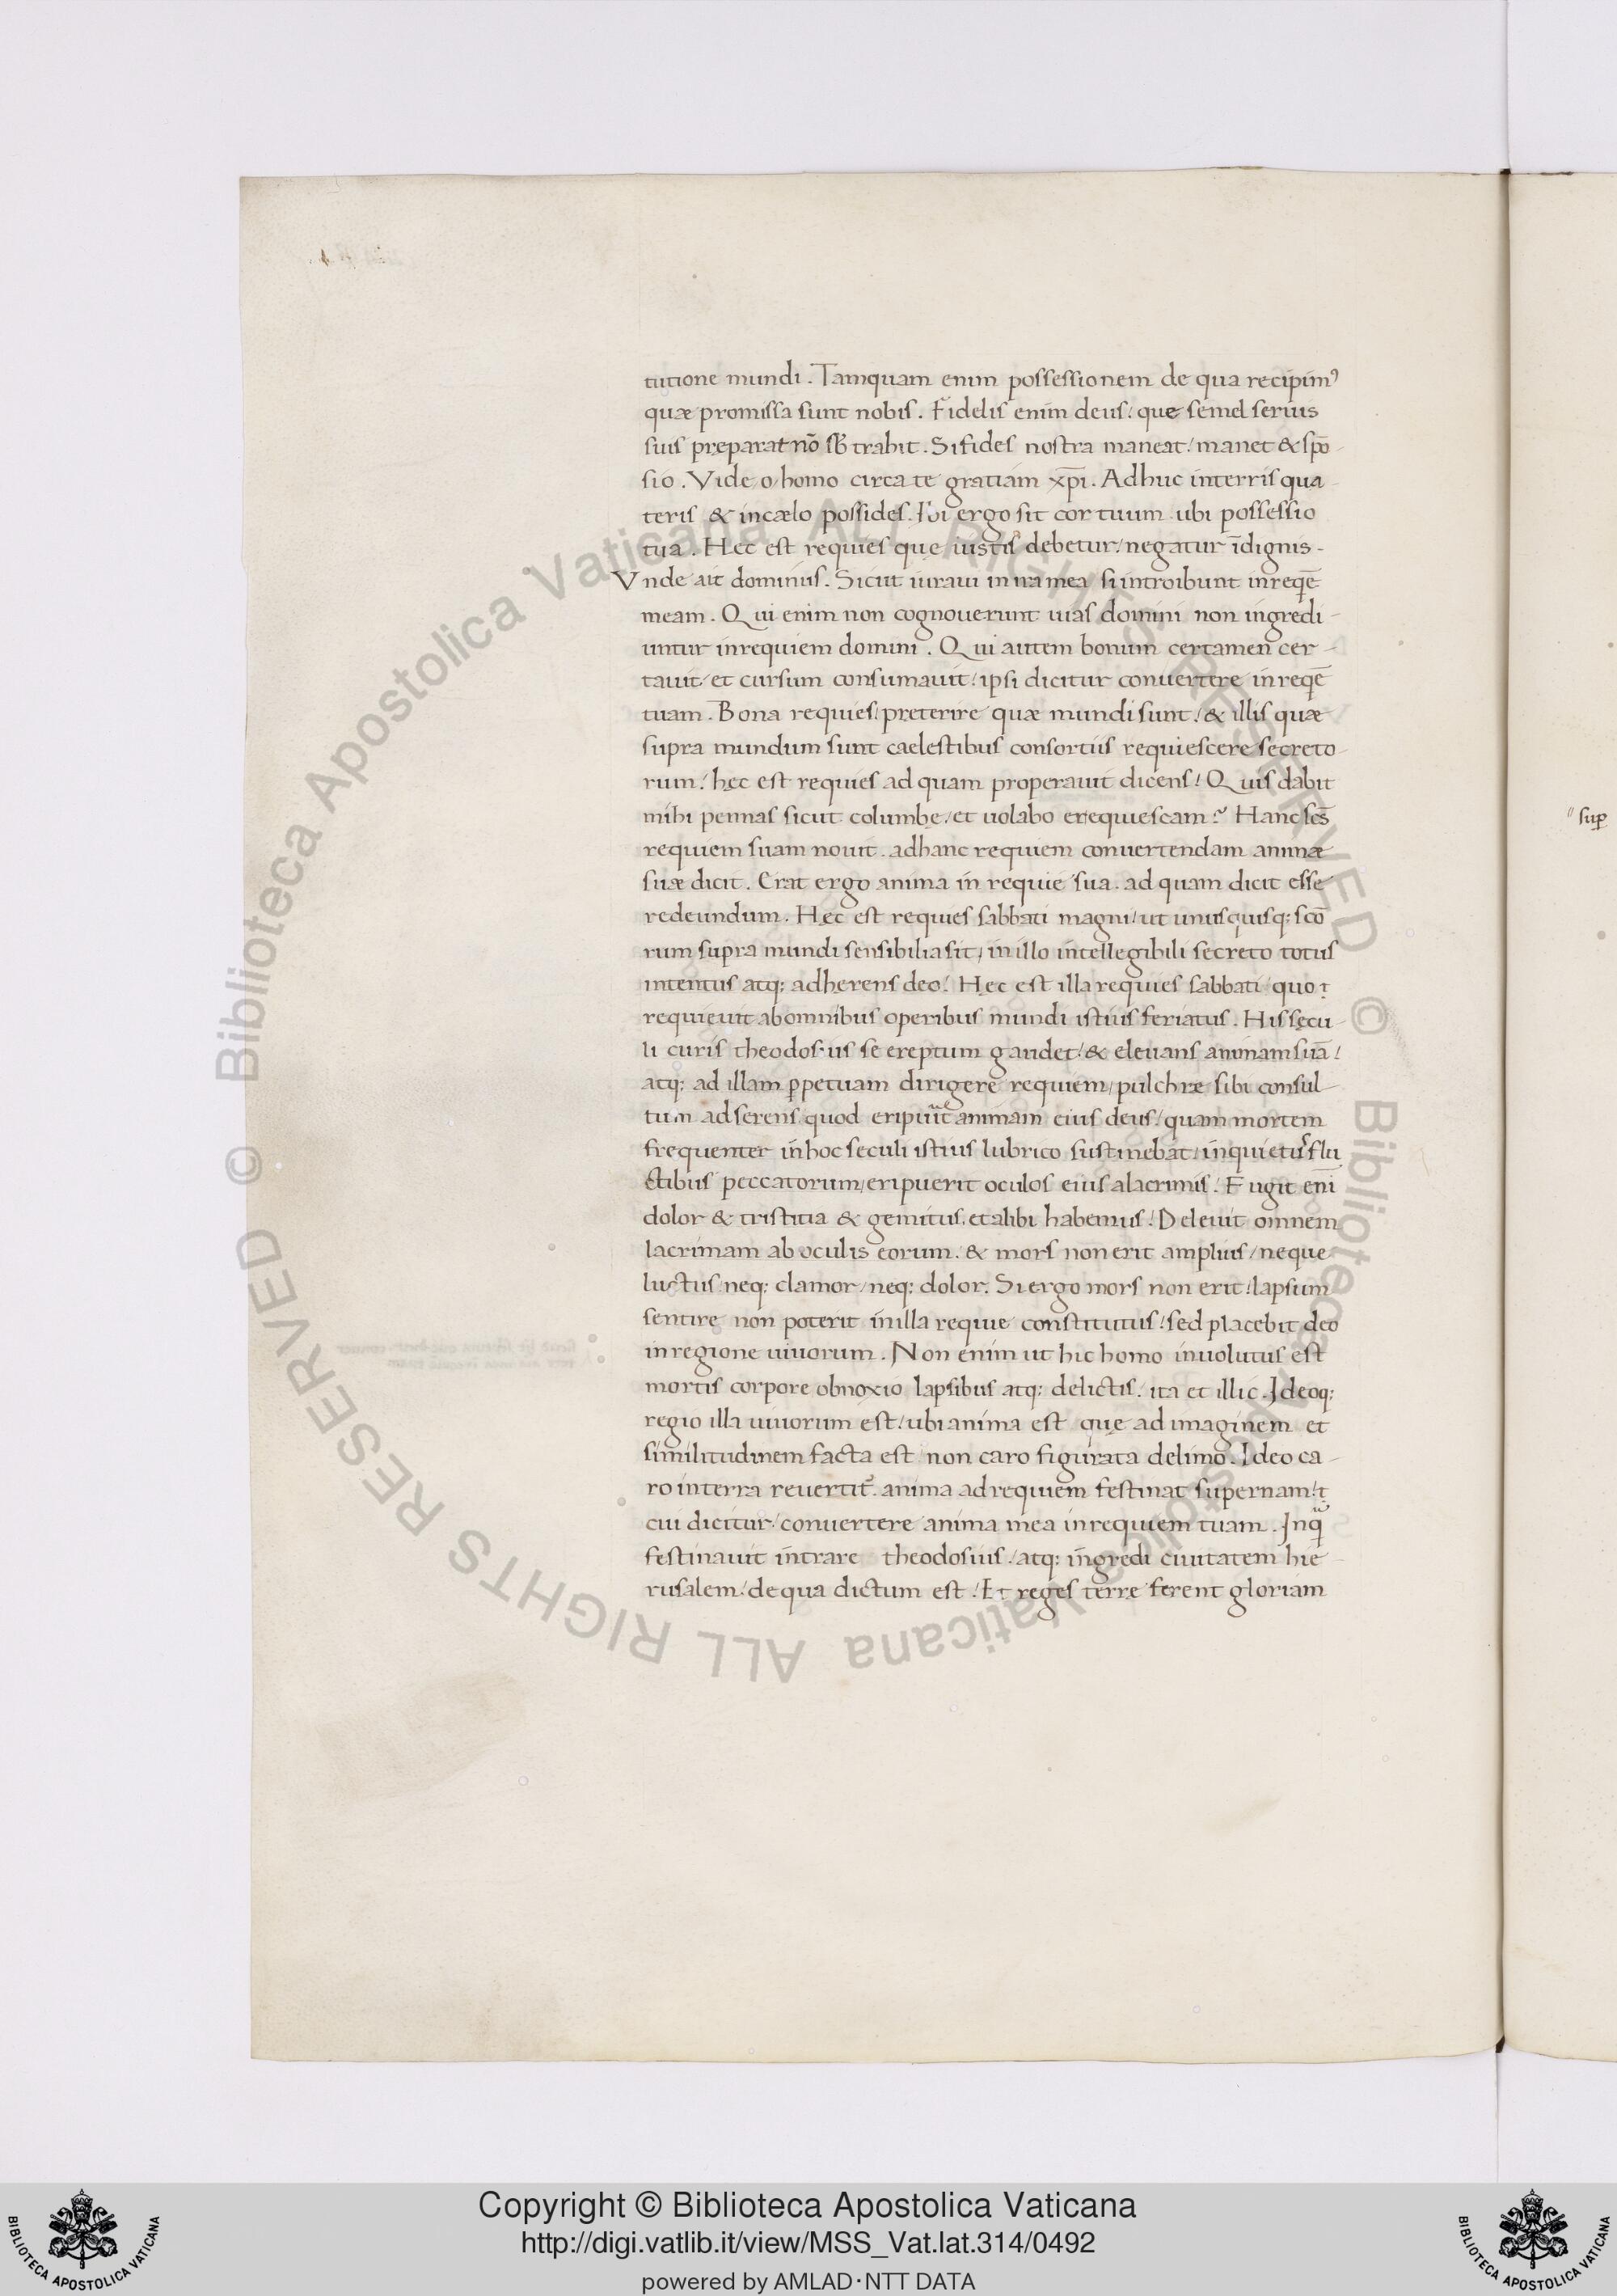 tutione mundi. Tamquam enim possessionem de qua recipimꝰ
quæ promissa sunt nobis. Fidelis enim deus/ que semel seruis
suis preparat nō sb̄trahit. Si fides nostra maneat/ manet & spō-
sio. Vide o homo circa te gratiam xp̄i. Adhuc interris qua-
teris & incælo possides. Ibi ergo sit cor tuum ubi possessio
tua. Hęc est requies quę iustis debetur/ negatur īdignis.
Vnde ait dominus. Sicut iuraui in ira mea si introibunt inreqē
meam. Qui enim non cognouerunt uias domini non ingredi-
untur inrequiem domini. Qui autem bonum certamen cer-
tauit/ et cursum consumauit/ ipsi dicitur conuertere inreqē
tuam. Bona requies/ pręterire quæ mundi sunt/ & illis quæ
supra mundum sunt caelestibus consortiis requiescere secreto-
rum/ hęc est requies ad quam properauit dicens/ Quis dabit
mihi pennas sicut columbę/ et uolabo erequiescam? Hanc scs̄
requiem suam nouit. adhanc requiem conuertendam animæ
suæ dicit. Erat ergo anima in requie sua. ad quam dicit esse
redeundum. Hęc est requies sabbati magni/ ut unusquisq; scō
rum supra mundi sensibilia sit, in illo intellegibili secreto totus
intentus atq; adherens deo/ Hęc est illa requies sabbati quo
requieuit abomnibus operibus mundi istius feriatus. His sęcu-
li curis theodosius se ereptum gaudet/ & eleuans animam suā/
atq; ad illam ꝑpetuam dirigere requiem/ pulchræ sibi consul-
tum adserens quod eripuit animam eius deus/ quam mortem
frequenter inhoc seculi istius lubrico sustinebat/ inquietus flu
ctibus peccatorum/ eripuerit oculos eius alacrimis/ Fugit enī
dolor & tristitia & gemitus. et alibi habemus/ Deleuit omnem
lacrimam ab oculis eorum. & mors non erit amplius/ neque
luctus/ neq; clamor/ neq; dolor. Si ergo mors non erit/ lapsum
sentire non poterit inilla requie constitutus/ sed placebit deo
inregione uiuorum. Non enim ut hic homo inuolutus est
mortis corpore obnoxio lapsibus atq; delictis. ita et illic. Ideoq;
regio illa uiuorum est/ ubi anima est quę ad imaginem et
similitudinem facta est non caro figurata delimo. Ideo ca-
ro interra reuertit᷑. anima adrequiem festinat supernam/
cui dicitur/ conuertere anima mea inrequiem tuam. Inq̄
festinauit intrare theodosius/ atq; ingredi ciuitatem hie-
rusalem/ dequa dictum est/ Et reges terrę ferent gloriam
suꝑ
© Biblioteca Apostolica Vaticana ALL RIGHTS RESERVED © Biblioteca Apostolica Vaticana ALL RIGHTS RESERVED
Copyright © Biblioteca Apostolica Vaticana
http://digi.vatlib.it/view/MSS_Vat.lat.314/0492
powered by AMLAD·NTT DATA
BIBLIOTECA APOSTOLICA VATICANA
BIBLIOTECA APOSTOLICA VATICANA